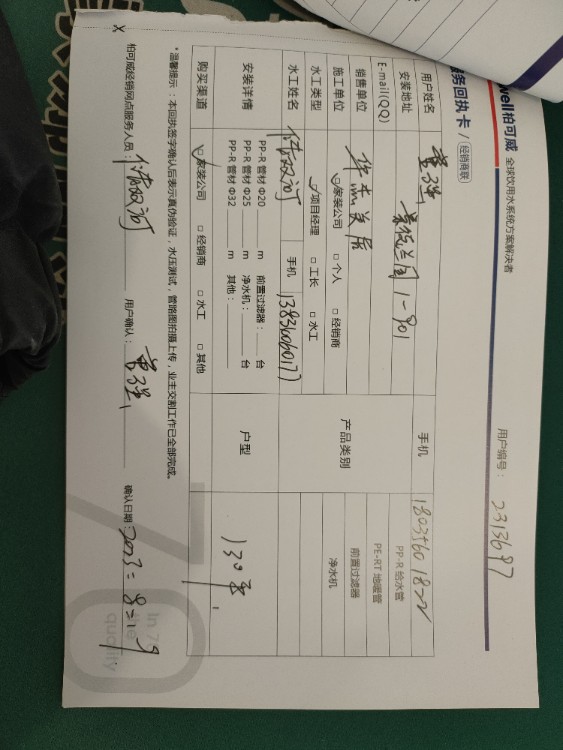 well柏可威 全球饮用水系统方案解决者
务回执卡 / 经销商联
用户编号： 2313697
用户姓名
手机 18035601822
安装地址 景悦兰园1-901
E-mail(QQ)
销售单位
产品类别
PP-R 给水管
PE-RT 地暖管
前置过滤器
净水机
施工单位 ☑家装公司 □个人 □经销商
水工类型 ☑项目经理 □工长 □水工
水工姓名
手机 13836060177
安装详情
PP-R 管材 Φ20 m 前置过滤器： 台
PP-R 管材 Φ25 m 净水机： 台
PP-R 管材 Φ32 m 其他：
户型 130
购买渠道 ☑家装公司 □经销商 □水工 □其他
*温馨提示：本回执签字确认后表示真伪验证，水压测试，管路图拍摄上传，业主交割工作已全部完成。
柏可威经销网点服务人员：
用户确认：
确认日期：2023=8=19
In 75
the
quality